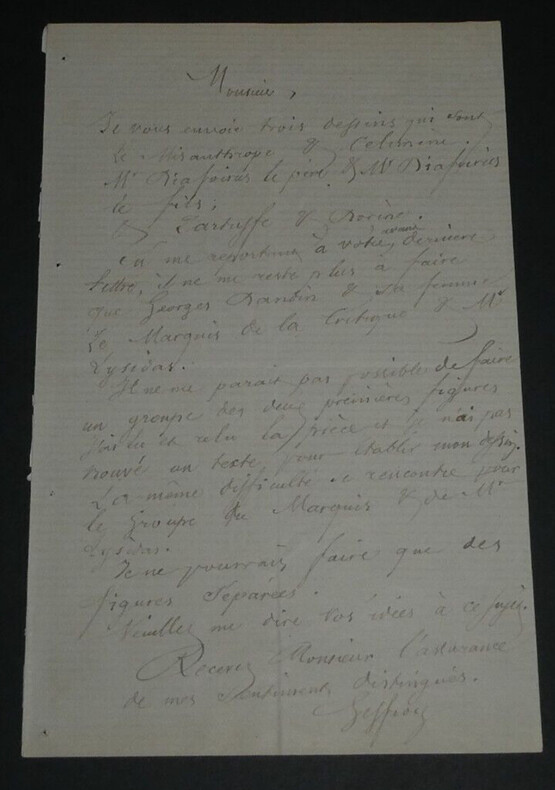 Monsieur,
Je vous envoie trois dessins qui sont
Le Misanthrope & Celimène.
Mr Diafoirus le père & Mr Diafoirus
le fils,
& Tartuffe & Dorine.
à me reportant à votre avant dernière
lettre, il ne me reste plus à faire
que Georges Dandin & sa femme
Le Marquis de la Critique & Mr
Lysidas.
Il ne me parait pas possible de faire
un groupe des deux premières figures
j'ai lu et relu la pièce et je n'ai pas
trouvé un texte pour établir mon dessin.
La même difficulté se rencontre pour
le groupe du Marquis & de Mr
Lysidas.
Je ne pourrais faire que des
figures separées.
Veuillez me dire vos idées à ce sujet.
Recevez Monsieur l'assurance
de mes sentiments distingués.
Geffroy